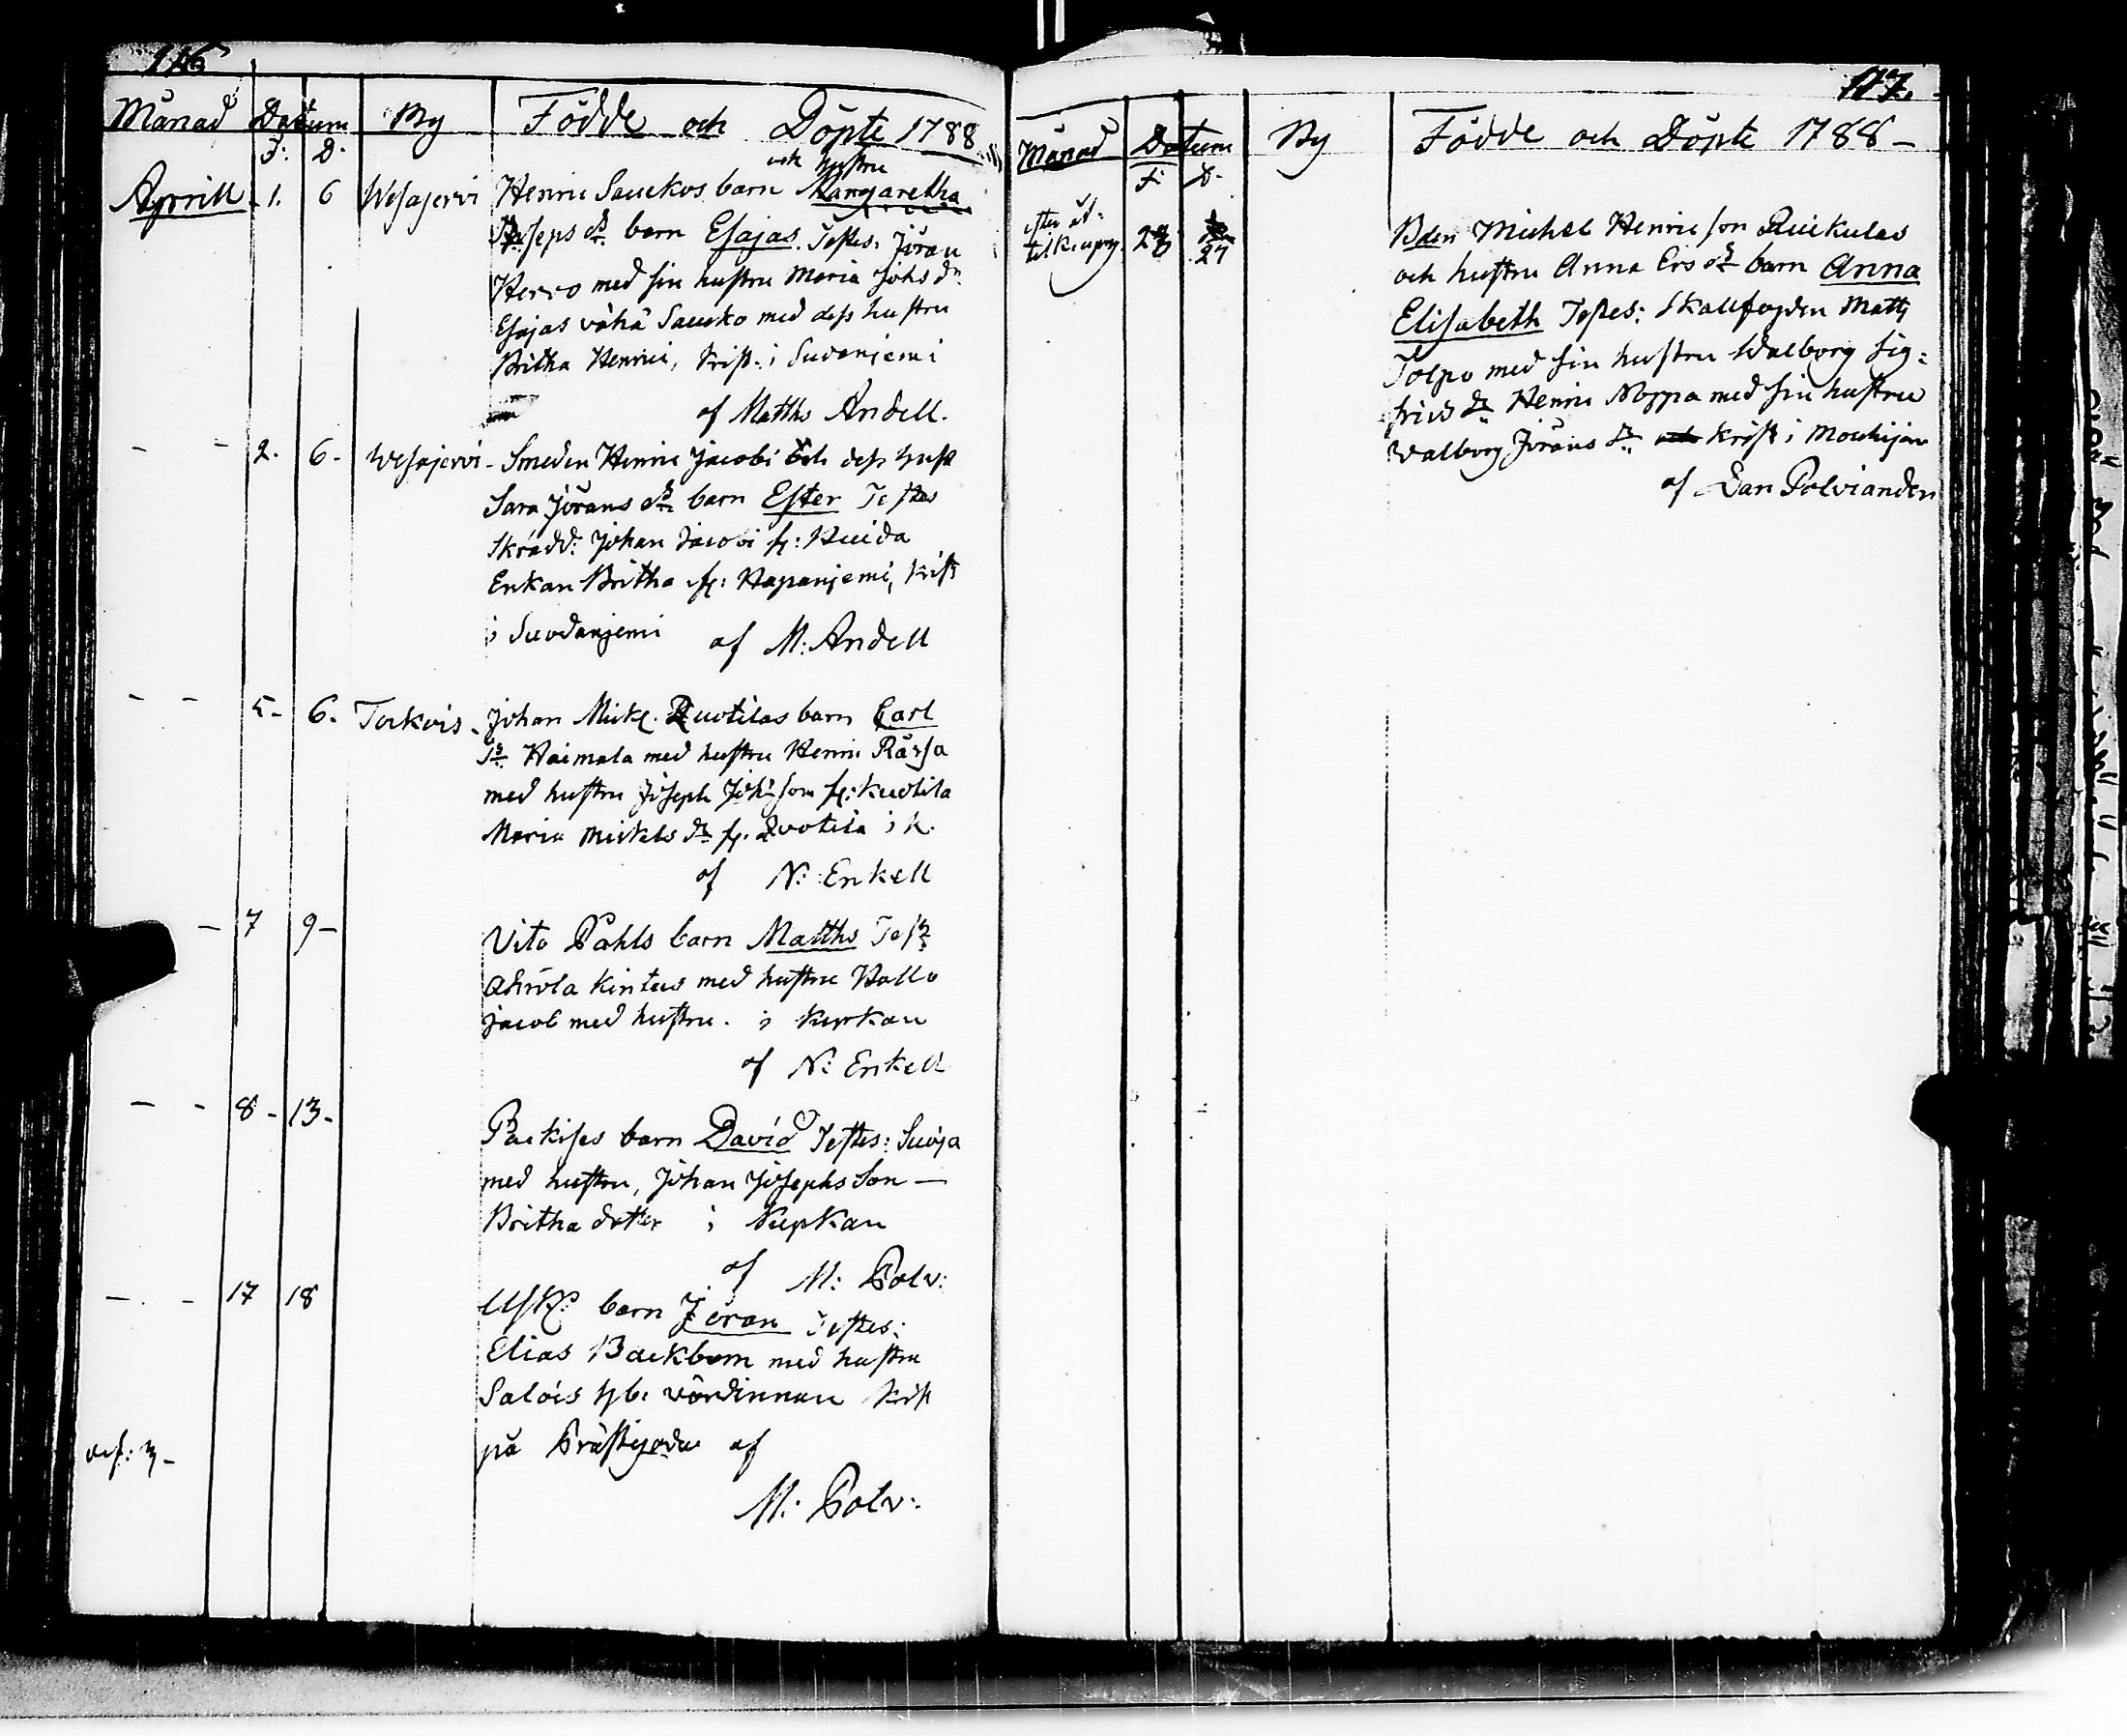 116
Månad Datum By Födde och Döpte 1788
F: D.
och hustru
Aprill 1. 6 Wesajervi Henric Sauckos barn Margaretha
Josephs dr barn Esajas. Testes: Jöran
Herro med sin hustru Maria Johs dr
Esajas vähä Saucko med dess hustru
Britha Henrici, krist. i Suvanjemi
af Matths Andell.
- - 2. 6- Wesajervi - Smeden Henric Jacobi och dess hust
Sara Jörans dr barn Ester Testes
Skrädd: Johan Jacobi fr: Huida
Enkan Britha fr: Hapanjemi, krist
i Suvdanjemi af M: Andell
- - 5- 6. Torkois - Johan Mick. Ruotilas barn Carl
Ts Haimala med hustru Henric Räisa
med hustru Joseph Joh: son fr: Ruotila
Maria Mickels dr fr. Ruotila i K.
af N: Enkell
- 7 9- Vito Påhls barn Matths Test
Ahvola Kinteus med hustru Hallo
Jacob med hustru. i Kyrkan
af N: Enkell
- - 8- 13- Packises barn David Testes: Suoja
med hustru, Johan Josephs Son -
Britha dotter i Kyrkan
af M: Polv:
- - 17 18 barn Jöran Testes:
Elias Backbom med hustru
Salois hb: värdinnan krist
på Prästgodu af
M: Polv:
117.
Månad Datum By Födde och Döpte 1788 -
F: D.
28 27 Bden Michel Henric son Ruikulas
och hustru Anna Ers dr barn Anna
Elisabeth Testes: Skallfogden Matts
Tolpo med sin hustru Walborg Sig:
frids dr Henric Noppa med sin hustru
Walborg Jörans dr och krist i
af Dan Polviander